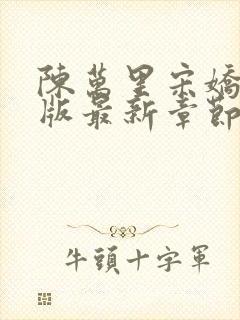 陳萬里宋嬌
版最新章節
牛頭十字軍